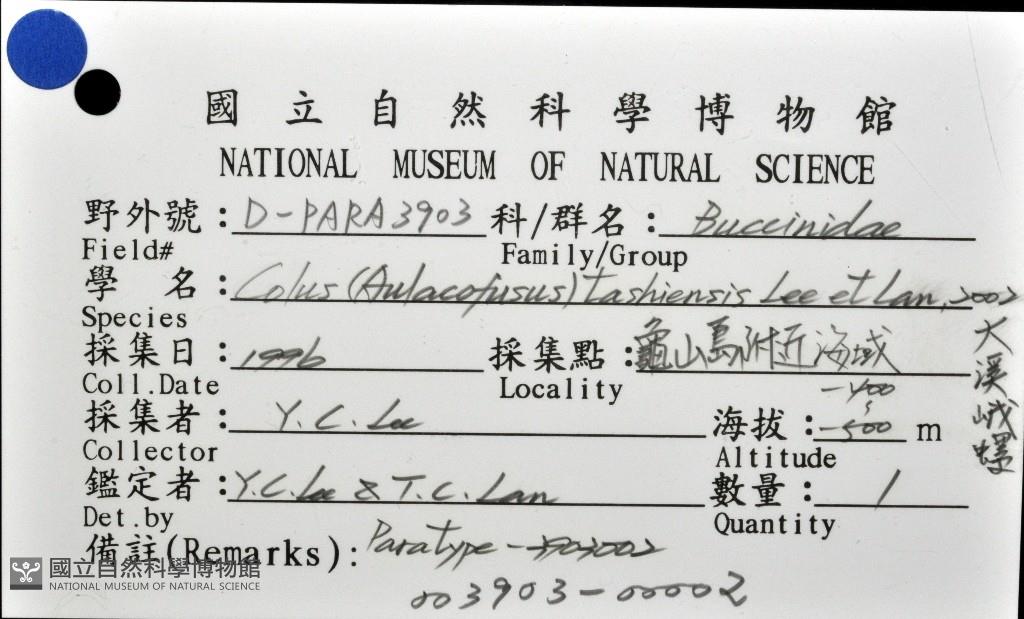 國立自然科學博物館
NATIONAL MUSEUM OF NATURAL SCIENCE
野外號：D-PARA3903 科/群名：Buccinidae
Field# Family/Group
學 名：Colus (Aulacofusus) tashiensis Lee et Lan, 2002
Species
採集日：1996 採集點：龜山島附近海域
Coll.Date Locality
大溪峨螺
-400
採集者：Y. C. Lee 海拔：-500 m
Collector Altitude
鑑定者：Y.C. Lee & T.C. Lan 數量：1
Det.by Quantity
備註(Remarks)：Paratype
003903-00002
國立自然科學博物館
NATIONAL MUSEUM OF NATURAL SCIENCE